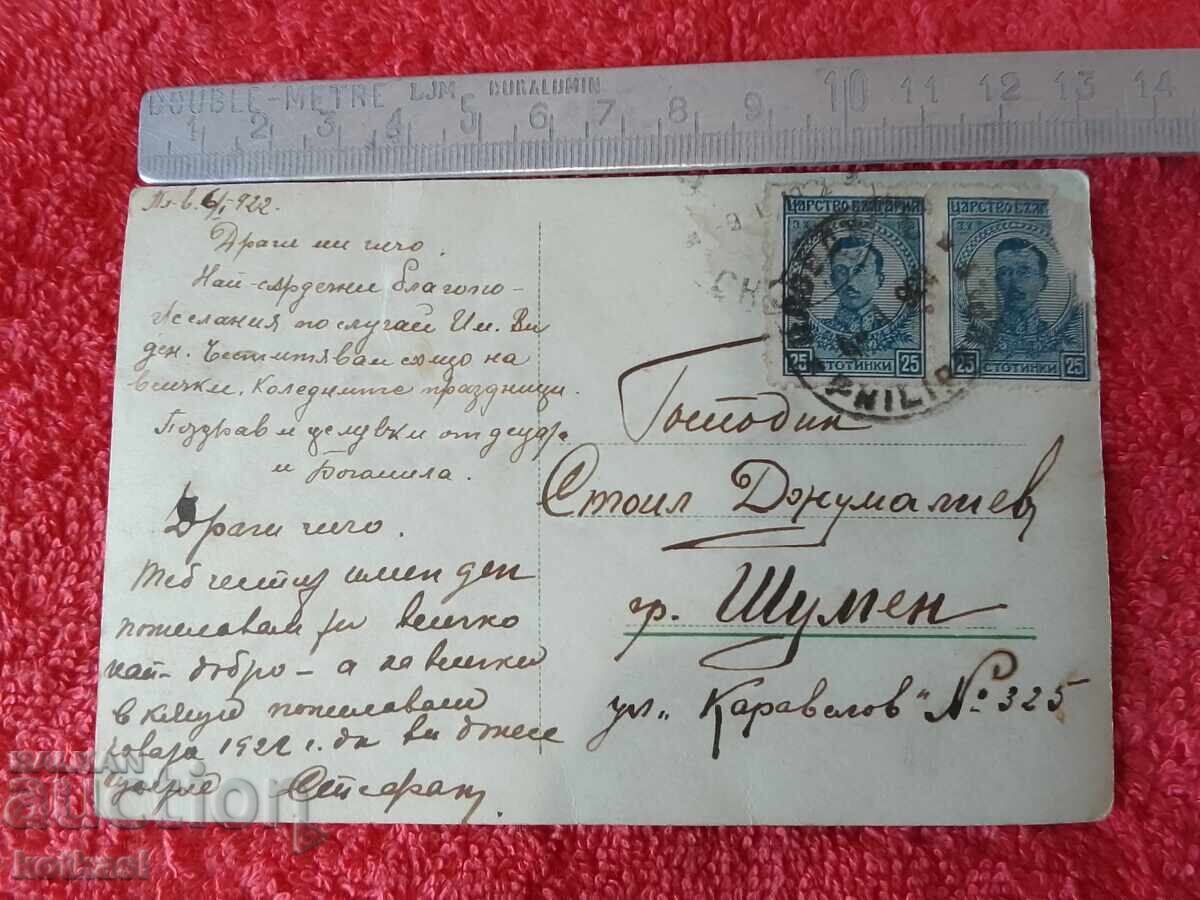 DOUBLE-METRE LJM DURALUMIN
1 2 3 4 5 6 7 8 9 10 11 12 13 14
6/I 922.
Драги ми чичо.
Най-сърдечни благопо-
желания по случай Им. Ви
ден. Честитявам също на
всички, Коледните праздници.
Поздрав и целувки от
и Богомила.
Драги чичо.
честит имен ден
пожелавам ти всичко
най-добро - а на всички
в къщи пожелавам
1922 г. да ви донесе
Стефан
ЦАРСТВО БЪЛГАРИЯ
25 СТОТИНКИ 25
ЦАРСТВО БЪЛ
25 СТОТИНКИ 25
PHILIP
Господин
Стоил Джумалиев
гр. Шумен
ул. „Каравелов" № 325
BALKAN
auction
kolkasl